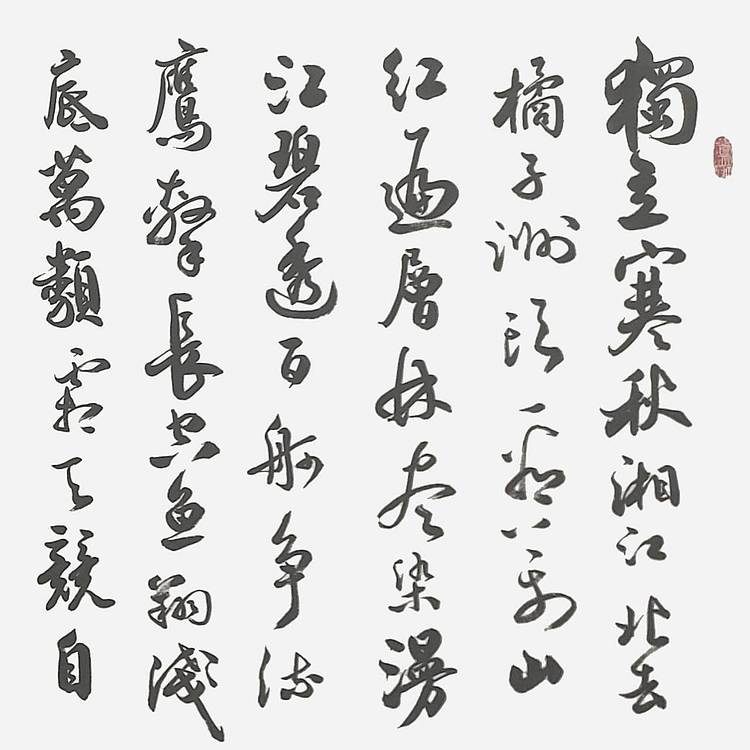 獨立寒秋湘江北去
橘子洲頭看萬山
红遍層林尽染漫
江碧透百舸争流
鷹擊長空鱼翔淺
底萬類霜天競自